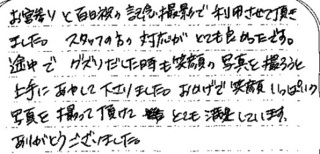 お宮参りと百日祝の記念撮影で利用させて頂き
ました。スタッフの方の対応がとても良かったです。
途中でグズリだした時も笑顔の写真を撮ろうと
上手にあやして下さりました。おかげで笑顔いっぱいの
写真を撮って頂けて とても満足しています。
ありがとうございました。